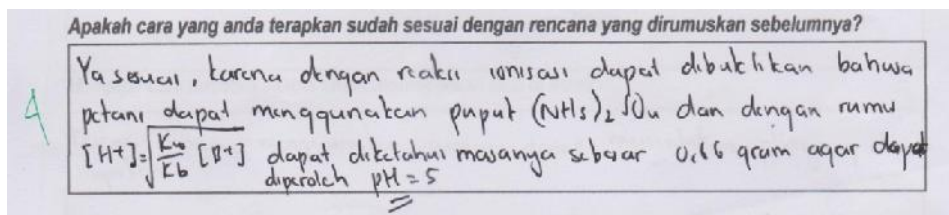 Apakah cara yang anda terapkan sudah sesuai dengan rencana yang dirumuskan sebelumnya?
Ya sesuai, karena dengan reaksi ionisasi dapat dibuktikan bahwa
4 petani dapat menggunakan puput (NH5)2 SO4 dan dengan rumu
[H+]=√Kw/Kb [B+] dapat diketahui masanya sebesar 0,66 gram agar dapat
diperoleh pH = 5